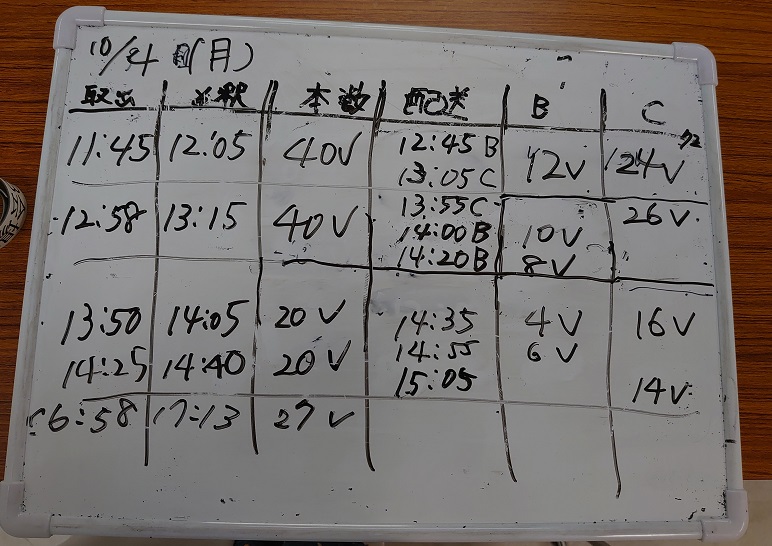 10/4 (月)
取出 希釈 本数 配送 B C
11:45 12:05 40V 12:45 B 12V 24V
13:05 C
12:58 13:15 40V 13:55 C 26V
14:00 B 10V
14:20 B 8V
13:50 14:05 20V 14:35 4V 16V
14:25 14:40 20V 14:55 6V
15:05 14V
16:58 17:13 27V